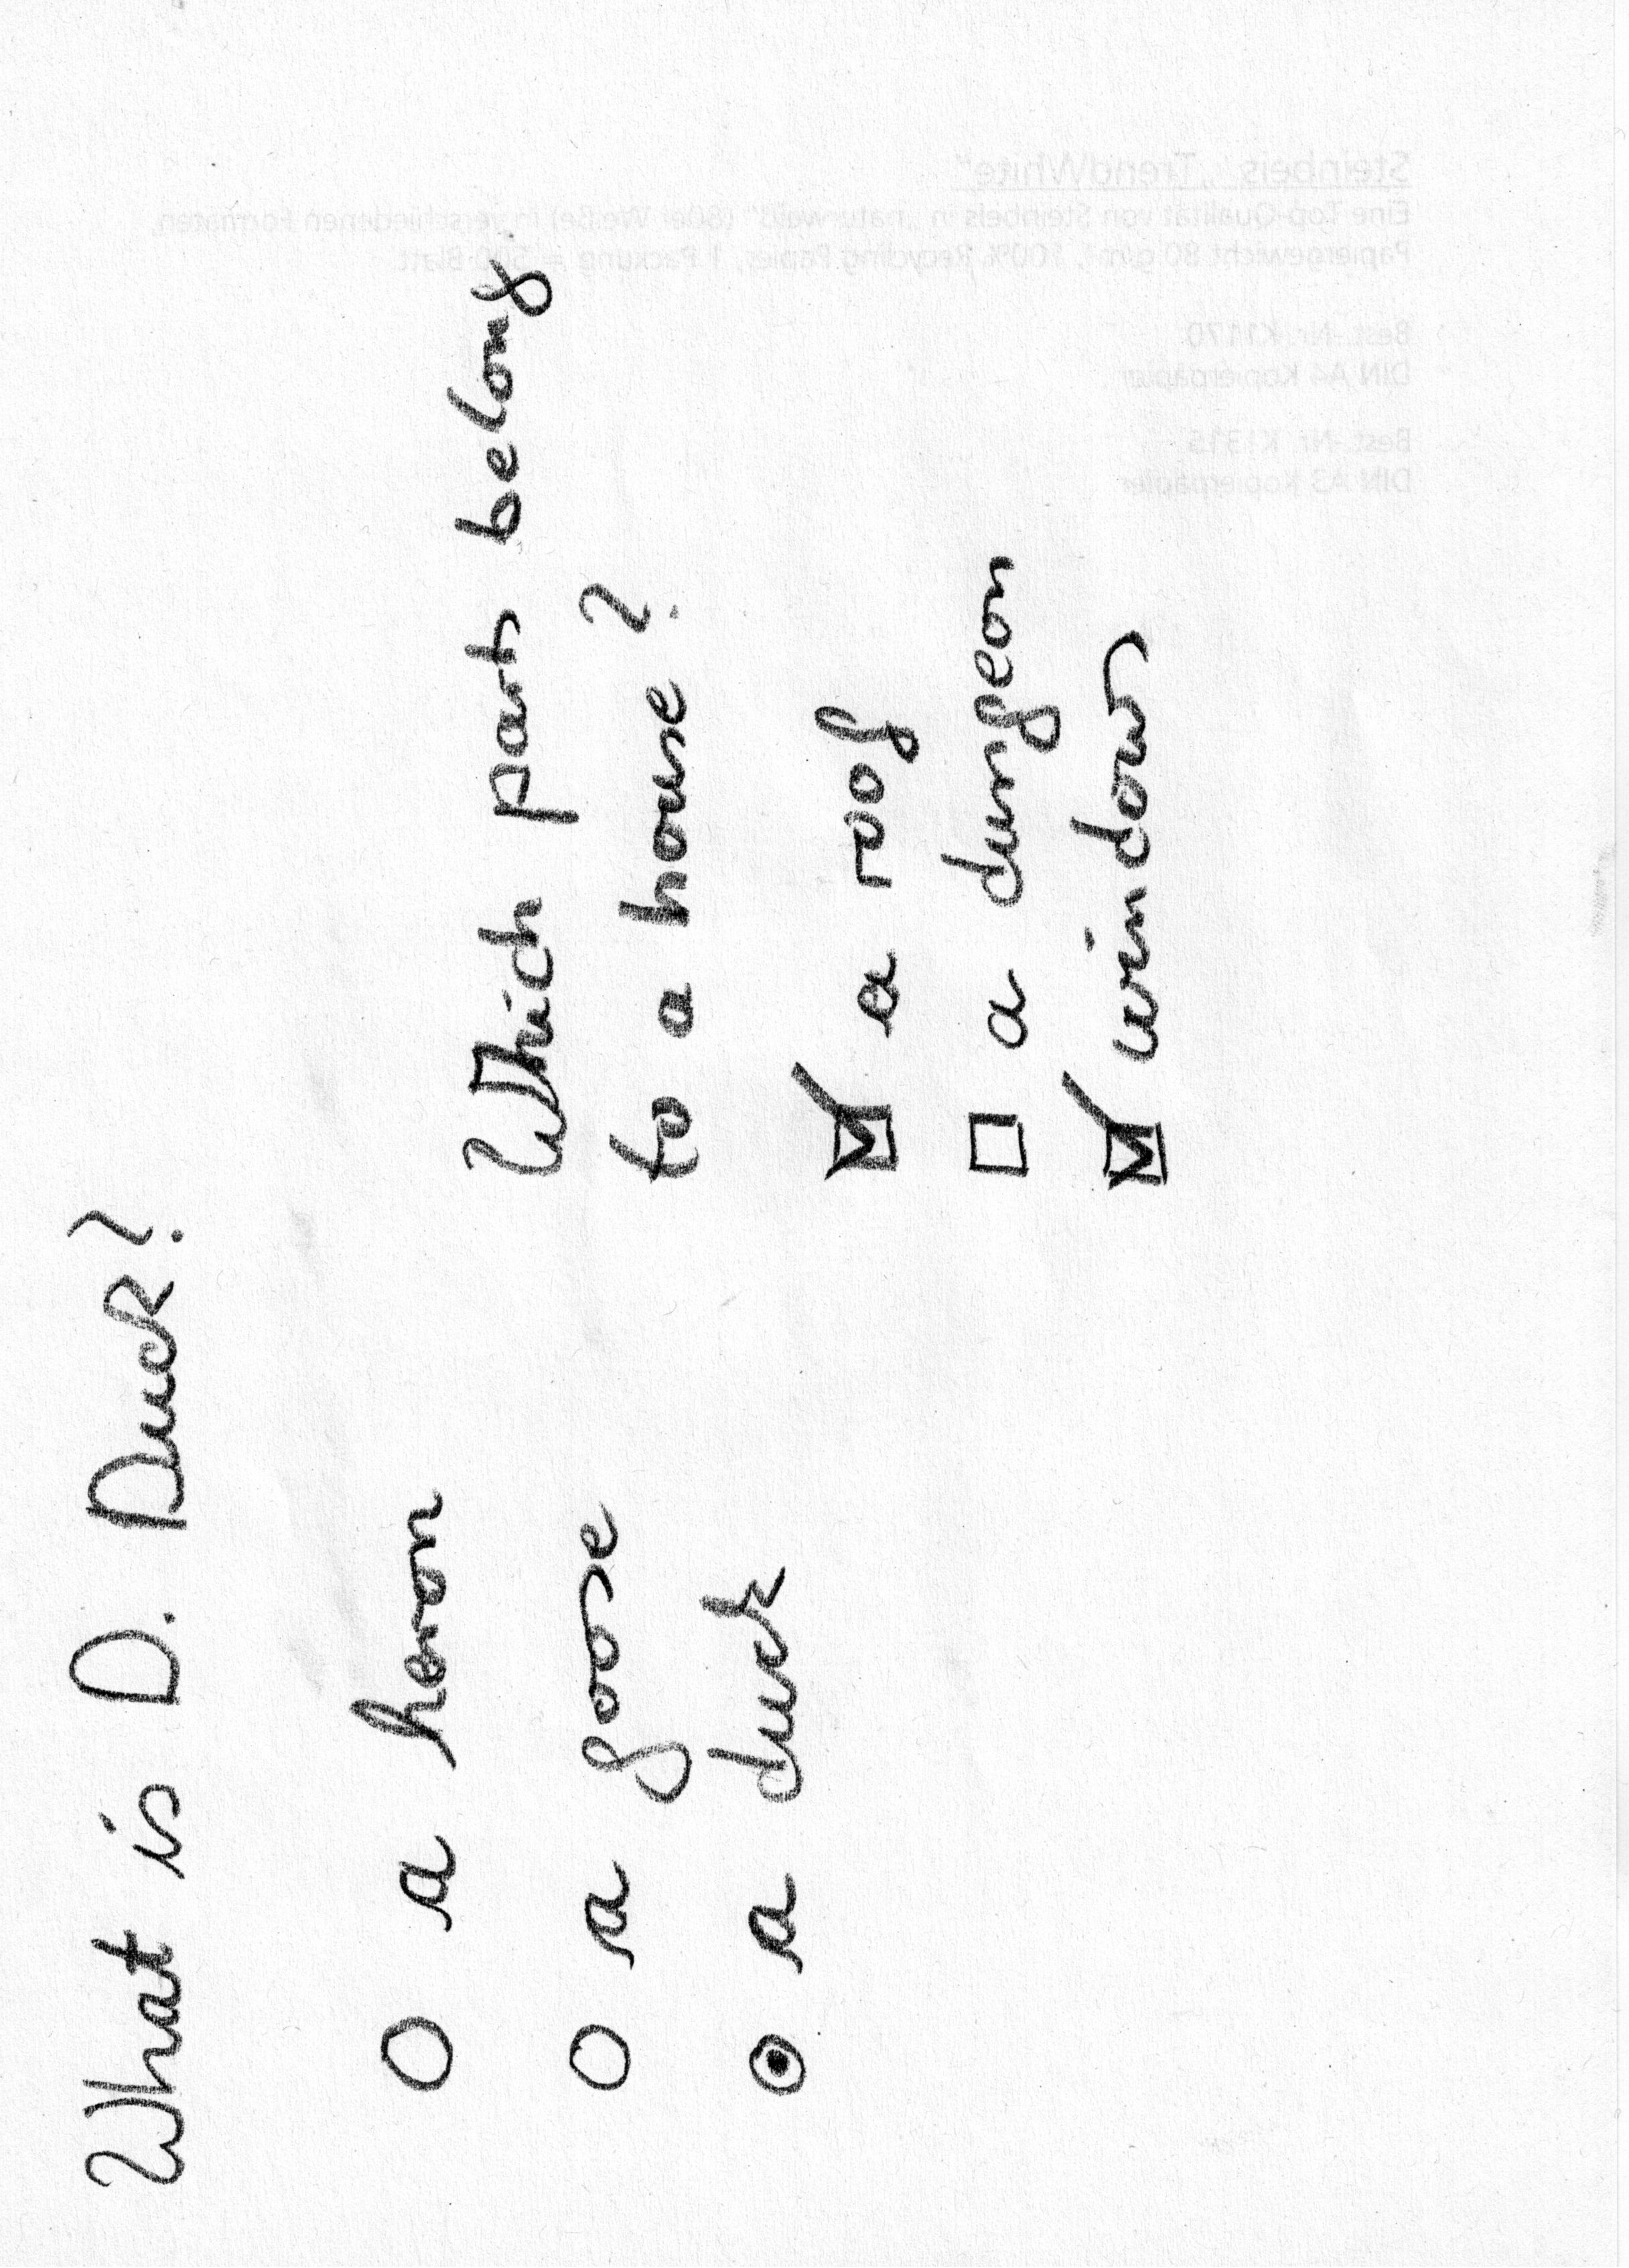 What is D. Duck?
○ a heron
○ a goose
◉ a duck
Which part belong
to a house?
☑ a roof
☐ a dungeon
☑ windows
Steinbeis „TrendWhite“
Eine Top-Qualität von Steinbeis in „naturweiß“ (80er Weiße) in verschiedenen Formaten,
Papiergewicht 80 g/m², 100% Recycling Papier, 1 Packung = 500 Blatt
Best.-Nr. K1170
DIN A4 Kopierpapier
Best.-Nr. K1315
DIN A3 Kopierpapier